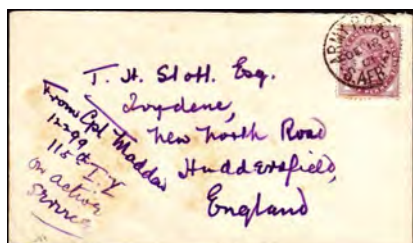 ARMY P.O.
S. AFR.
T. H. Stott. Esq.
New North Road
Huddersfield,
England
From Cpl Maddox
12299
115 Co I.Y
On active
service